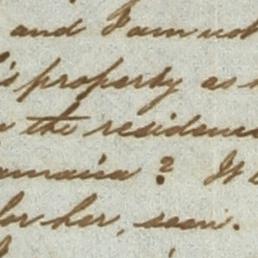 and I am not
's property as
the residence
amaica? It
for her, seen.